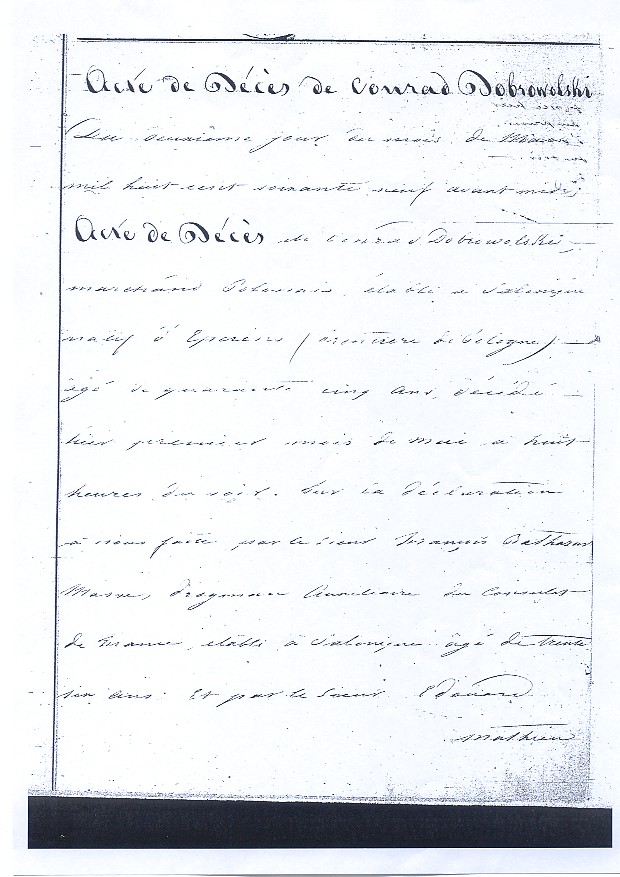 Acte de Décès de Conrad Dobrowolski
Du deuxième jour du mois de
mil huit cent soixante neuf avant midi
Acte de Décès de Conrad Dobrowolski,
marchand Polonais établi à Salonique
natif d' (frontière de Pologne)
âgé de quarante cinq ans, décédé
hier premier mois de mai à huit
heures du soir. Sur la déclaration
à nous faite par le Sieur François
Masse, drogman Auxiliaire du Consulat
de France, établi à Salonique âgé de trente
six ans. Et par le Sieur Edouard
Mathieu